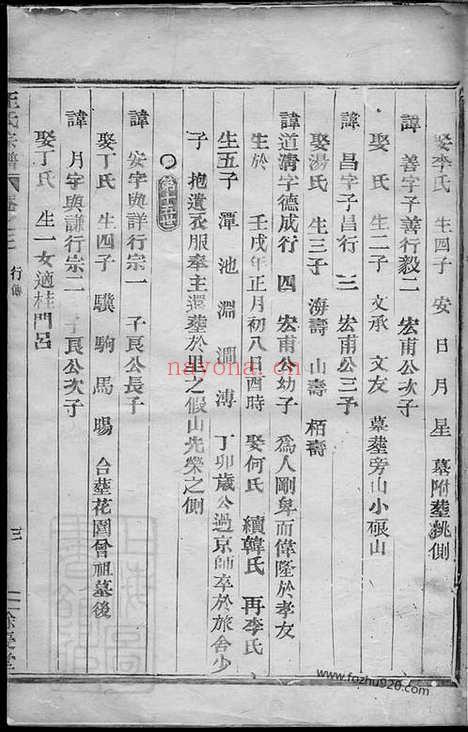 娶李氏 生四子 安 日 月 星 墓附塟祧側
諱 善字子善行毅二 宏甫公次子
娶 氏 生二子 文承 文友 墓塟旁山小碾山
諱 昌字子昌行 三 宏甫公三子
娶湯氏 生三子 海壽 山壽 栢壽
諱道清字德成行 四 宏甫公幼子 爲人剛毅而偉隆於孝友
生於 壬戌年正月初八日酉時 娶何氏 續韓氏 再李氏
生五子 潭 池 淵 澗 溥 丁卯歲公過京師卒於旅舍少
子 抱遺衣服奉主還塟於里之假山先塋之側
第十五世
諱 安字與詳行宗一 子良公長子
娶丁氏 生四子 驥 駒 馬 賜 合塟花園曾祖墓後
諱 月字與謙行宗二 子良公次子
娶丁氏 生一女適桂門呂
王氏宗譜 卷之三 行傳 三 餘慶堂
nayona.cn
www.fozhu920.com